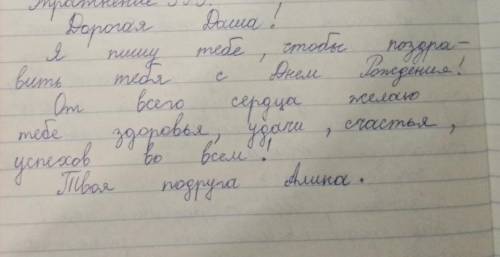 Упражнение
Дорогая Даша!
Я пишу тебе, чтобы поздра-
вить тебя с Днем Рождения!
От всего сердца желаю
тебе здоровья, удачи, счастья,
успехов во всем!
Твоя подруга Алина.